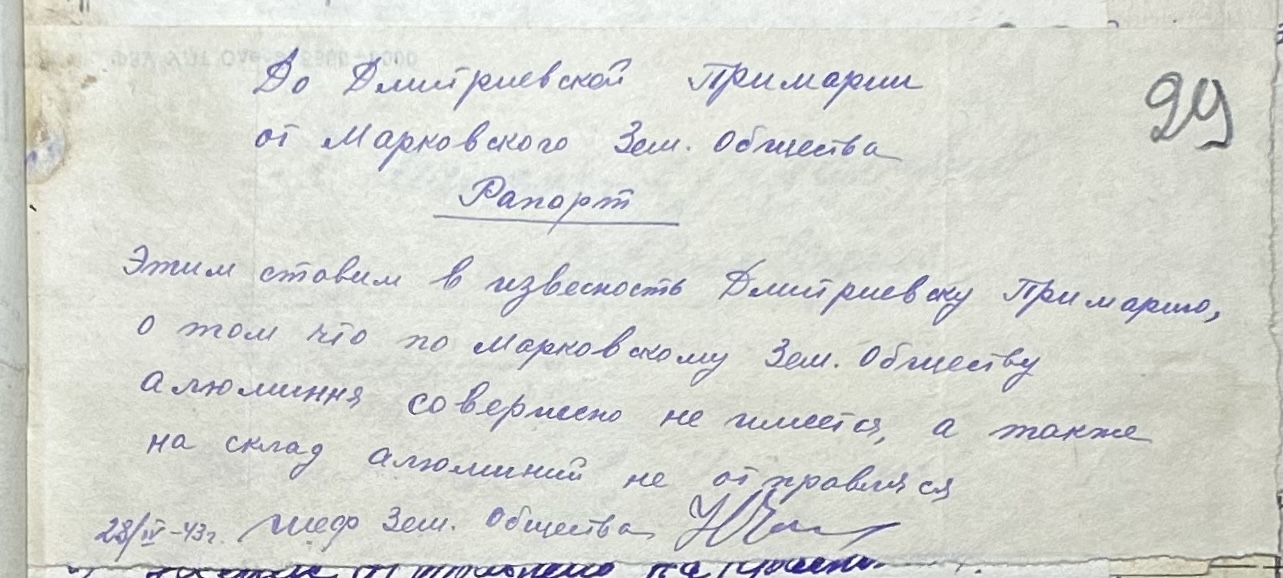 До Дмитриевской Примарии
29
от Марковского Зем. Общества
Рапорт
Этим ставим в извесность Дмитриевску Примарию,
о том что по Марковскому Зем. Обществу
алюминня совершено не имеется, а также
на склад алюминий не отправлялся
28/IV-43г. шеф Зем. Общества